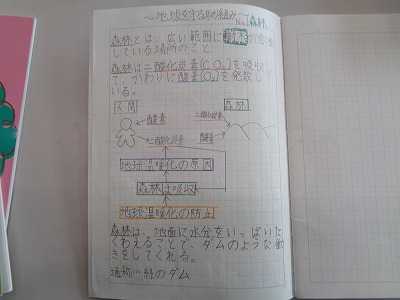 ～地球を守る取り組み～
No.1森林
森林とは、広い範囲に樹木が
している場所のこと
森林は二酸化炭素(CO₂)を吸収し
て、かわりに酸素(O₂)を発散して
いる。
人間
森林
酸素
二酸化炭素
二酸化炭素
酸素
地球温暖化の原因
森林は吸収
地球温暖化の防止
森林は、地面に水分をいっぱいた
くわえることで、ダムのような働
きをしてくれる。
緑のダム